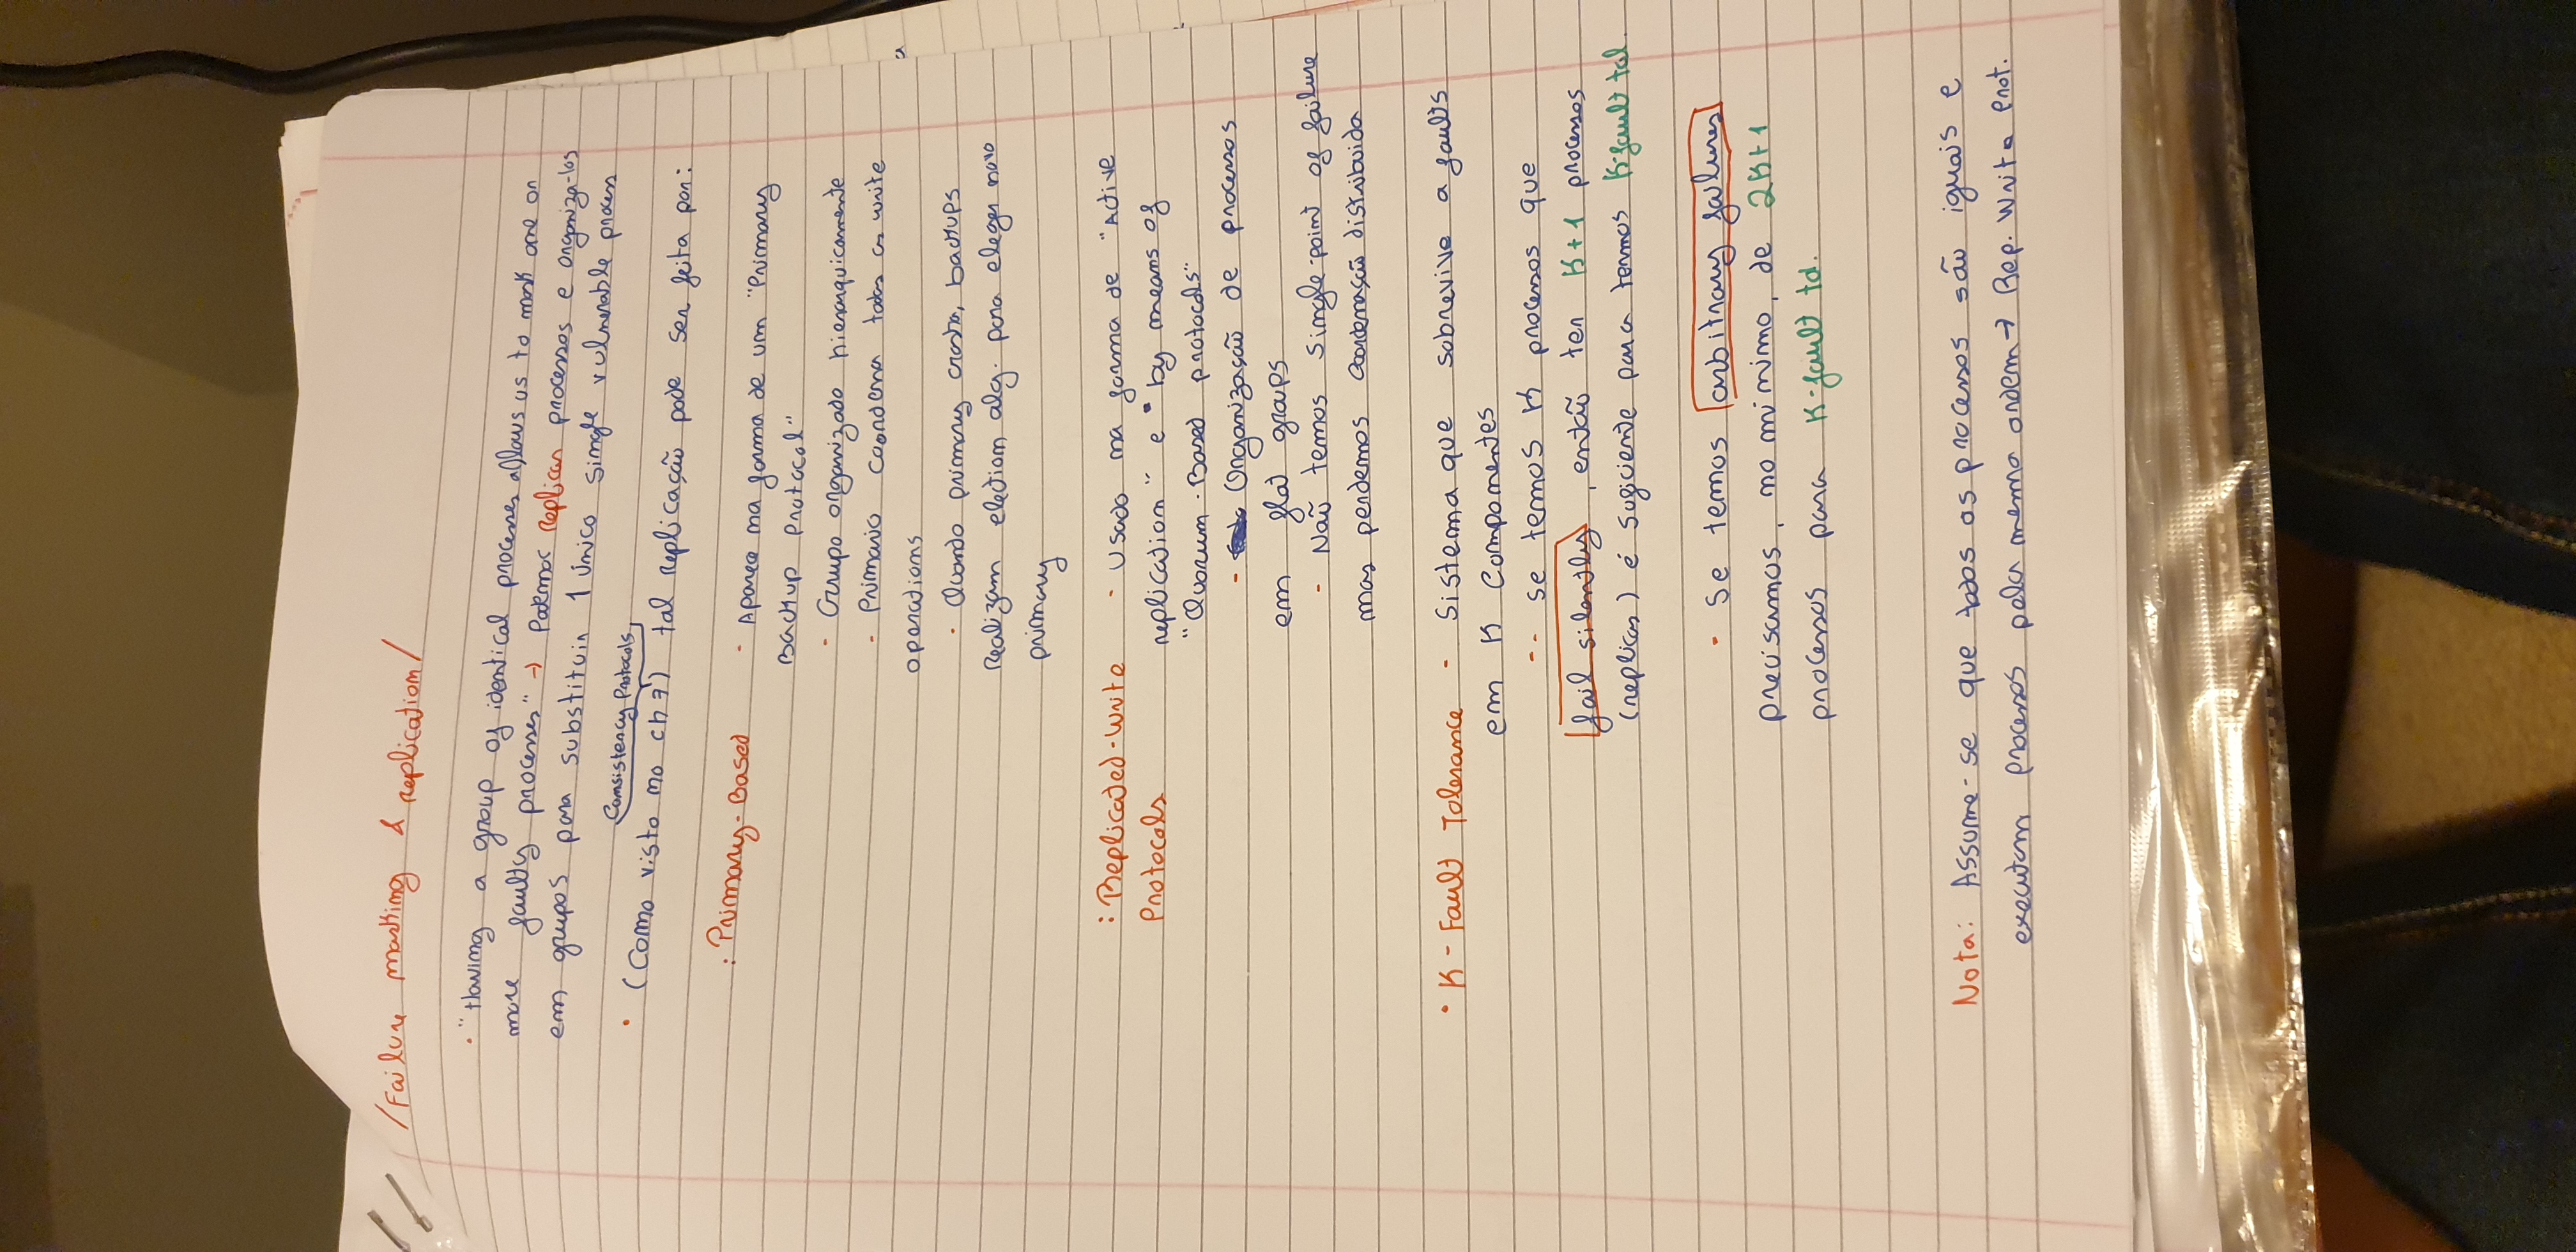 /Failure masking & replication/
· "Having a group of identical processes allows us to mask one or
more faulty processes" → Podemos replicar processos e organiza-los
em grupos para substituir 1 único single vulnerable process
Consistency Protocols
· (Como visto no ch 7) tal replicação pode ser feita por:
: Primary-Based - Aparece na forma de um "Primary
Backup Protocol"
- Grupo organizado hierarquicamente
- Primario coordena todas as write
operations
· Quando primary crasha, backups
realizam election alg. para eleger novo
primary
: Replicated-Write - Usado na forma de "Active
Protocols replication" e "by means of
"Quorum-Based protocols"
- Organização de processos
em flat groups
- Não temos single-point of failure
mas perdemos coordenação distribuida
· K-Fault Tolerance - Sistema que sobrevive a faults
em K componentes
-- se temos K processos que
fail silently, então ter K+1 processos
(replicas) é suficiente para termos K-fault tol.
· Se temos arbitrary failures
precisamos, no minimo, de 2K+1
processos para K-fault tol.
Nota: Assume-se que todos os processos são iguais e
executam processos pela mesma ordem → Rep. Write Prot.